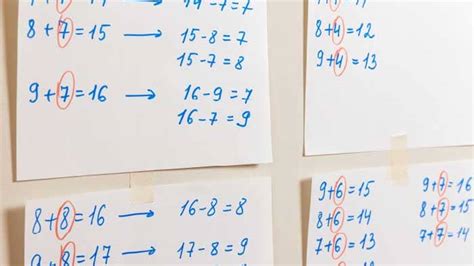 14-7=7
8+7=15 → 15-8=7
15-7=8
9+7=16 → 16-9=7
16-7=9
8+4=12
9+4=13
8+8=16 → 16-8=8
9+8=17 → 17-8=9
9+6=15 9+7=16
8+6=14 8+7=15
7+6=13 7+7=14